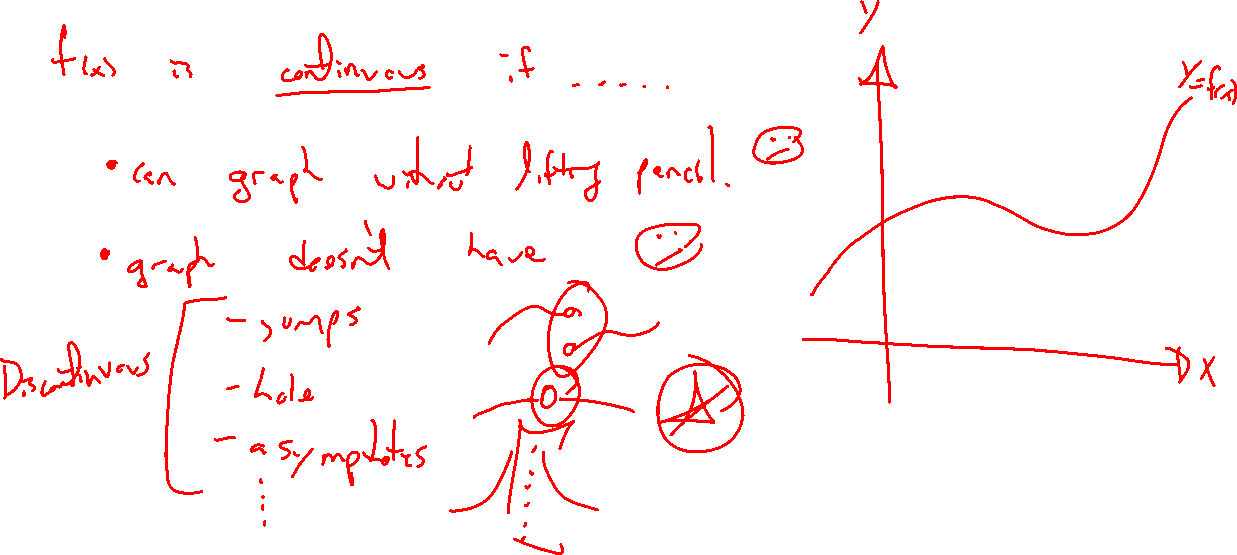 f(x) is continuous if .....
• can graph without lifting pencil.
• graph doesn't have
Discontinuous
- jumps
- hole
- asymptotes
y
y=f(x)
x